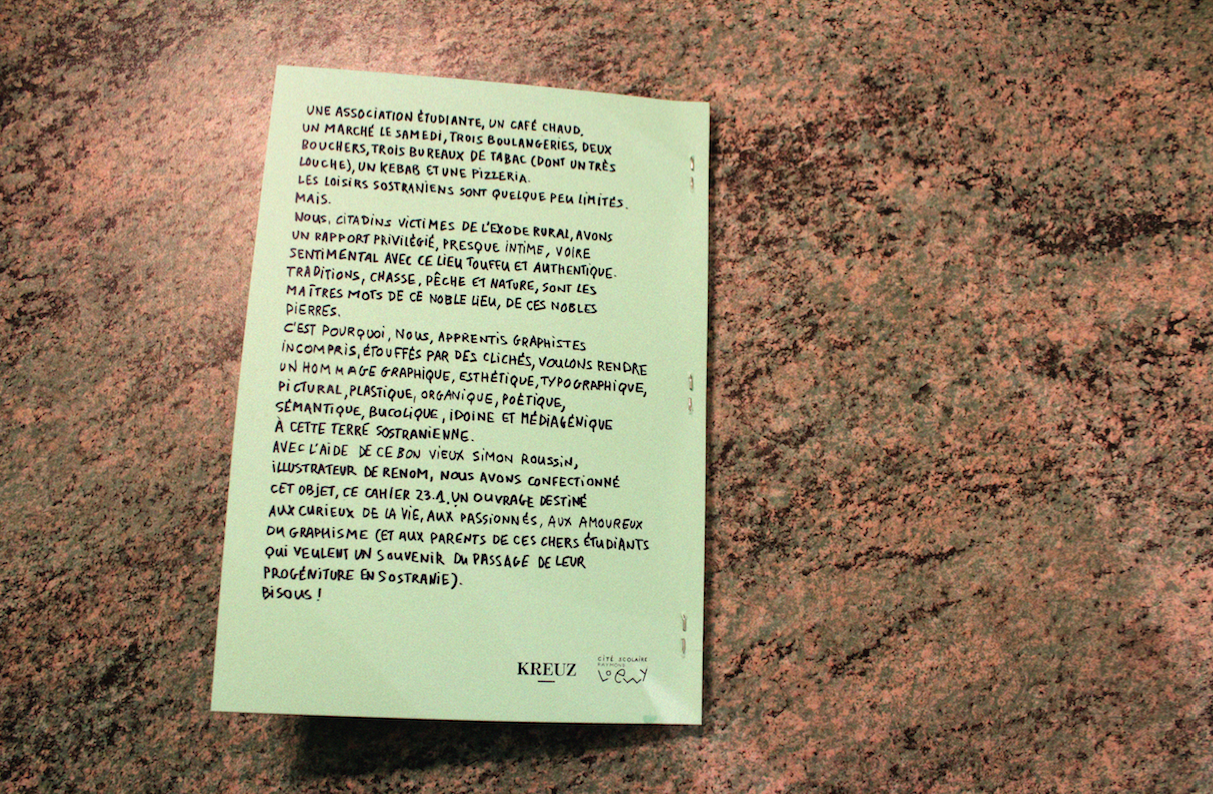 UNE ASSOCIATION ÉTUDIANTE, UN CAFÉ CHAUD,
UN MARCHÉ LE SAMEDI, TROIS BOULANGERIES, DEUX
BOUCHERS, TROIS BUREAUX DE TABAC (DONT UN TRÈS
LOUCHE), UN KEBAB ET UNE PIZZERIA.
LES LOISIRS SOSTRANIENS SONT QUELQUE PEU LIMITÉS.
MAIS.
NOUS, CITADINS VICTIMES DE L'EXODE RURAL, AVONS
UN RAPPORT PRIVILÉGIÉ, PRESQUE INTIME, VOIRE
SENTIMENTAL AVEC CE LIEU TOUFFU ET AUTHENTIQUE.
TRADITIONS, CHASSE, PÊCHE ET NATURE, SONT LES
MAÎTRES MOTS DE CE NOBLE LIEU, DE CES NOBLES
PIERRES.
C'EST POURQUOI, NOUS, APPRENTIS GRAPHISTES
INCOMPRIS, ÉTOUFFÉS PAR DES CLICHÉS, VOULONS RENDRE
UN HOMMAGE GRAPHIQUE, ESTHÉTIQUE, TYPOGRAPHIQUE,
PICTURAL, PLASTIQUE, ORGANIQUE, POÉTIQUE,
SÉMANTIQUE, BUCOLIQUE, IDOINE ET MÉDIAGÉNIQUE
À CETTE TERRE SOSTRANIENNE.
AVEC L'AIDE DE CE BON VIEUX SIMON ROUSSIN,
ILLUSTRATEUR DE RENOM, NOUS AVONS CONFECTIONNÉ
CET OBJET, CE CAHIER 23.1, UN OUVRAGE DESTINÉ
AUX CURIEUX DE LA VIE, AUX PASSIONNÉS, AUX AMOUREUX
DU GRAPHISME (ET AUX PARENTS DE CES CHERS ÉTUDIANTS
QUI VEULENT UN SOUVENIR DU PASSAGE DE LEUR
PROGÉNITURE EN SOSTRANIE).
BISOUS !
KREUZ
CITÉ SCOLAIRE
RAYMOND
LOEWY